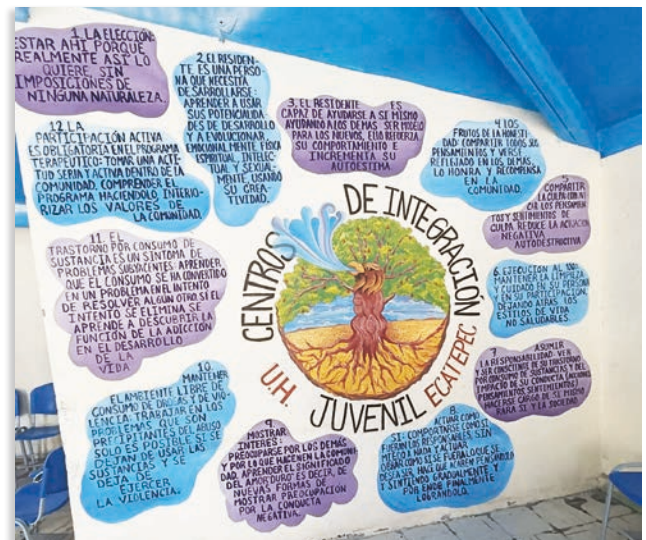 1. LA ELECCIÓN:
ESTAR AHÍ PORQUE
REALMENTE ASÍ LO
QUIERE, SIN
IMPOSICIONES DE
NINGUNA NATURALEZA.
2. EL RESIDEN-
TE ES UNA PERSO-
NA QUE NECESITA
DESARROLLARSE:
APRENDER A USAR
SUS POTENCIALIDA-
DES DE DESARROLLO
Y A EVOLUCIONAR
EMOCIONALMENTE FÍSICA
ESPIRITUAL, INTELEC-
TUAL Y SEXUAL-
MENTE, USANDO
SU CREA-
TIVIDAD.
3. EL RESIDENTE ES
CAPAZ DE AYUDARSE A SI MISMO
AYUDANDO A LOS DEMAS: SER MODELO
PARA LOS NUEVOS, ELLO REFUERZA
SU COMPORTAMIENTO E
INCREMENTA SU
AUTOESTIMA.
4. LOS
FRUTOS DE LA HONESTI-
DAD: COMPARTIR TODOS SUS
PENSAMIENTOS Y VERSE
REFLEJADO EN LOS DEMAS,
LO HONRA Y RECOMPENSA
EN LA
COMUNIDAD.
5.
COMPARTIR
LA CULPA CON
LOS PENSAMIEN-
TOS Y SENTIMIENTOS DE
CULPA REDUCE LA
NEGATIVA
AUTODESTRUCTIVA
6. EJECUCIÓN AL 100:
MANTENER LA LIMPIEZA
Y CUIDADO EN SU PERSONA
EN SU PARTICIPACIÓN,
DEJANDO ATRAS LOS
ESTILOS DE VIDA
NO SALUDABLES.
7. ASUMIR
LA RESPONSABILIDAD: VER
Y SER CONSCIENTE DE SU TRASTORNO
POR CONSUMO DE SUSTANCIAS Y DEL
IMPACTO DE SU CONDUCTA (ACCIONES
PENSAMIENTOS SENTIMIENTOS)
HACERSE CARGO DE SI MISMO
PARA SI Y LA SOCIEDAD.
8.
ACTUAR COMO
SI: COMPORTARSE COMO SI
FUERAN LOS RESPONSABLES, SIN
MIEDO A NADA Y ACTUAR,
OBRAR COMO SI SE FUERA LO QUE SE
DESEA SER, HACE QUE ACABEN PENSANDO
Y SINTIENDO GRADUALMENTE Y
POR ENDE FINALMENTE
LOGRÁNDOLO.
9.
MOSTRAR
INTERÉS:
PREOCUPARSE POR LOS DEMÁS
Y POR LO QUE HACEN EN LA COMUNI-
DAD, APRENDER EL SIGNIFICADO
DEL "AMOR DURO" ES DECIR, DE
NUEVAS FORMAS DE
MOSTRAR PREOCUPACIÓN
POR LA CONDUCTA
NEGATIVA.
10.
MANTENER
EL AMBIENTE LIBRE DE
CONSUMO DE DROGAS Y DE VIO-
LENCIA Y TRABAJAR EN LOS
PROBLEMAS QUE SON
PRECIPITANTES DEL ABUSO
SOLO ES POSIBLE SI SE
DEJAN DE USAR LAS
SUSTANCIAS Y SE
DEJA DE
EJERCER
LA VIOLENCIA.
11. EL
TRASTORNO POR CONSUMO DE
SUSTANCIA ES UN SINTOMA DE
PROBLEMAS SUBYACENTES: APRENDER
QUE EL CONSUMO SE HA CONVERTIDO
EN UN PROBLEMA EN EL INTENTO
DE RESOLVER ALGÚN OTRO, SÍ EL
INTENTO SE ELIMINA SE
APRENDE A DESCUBRIR LA
FUNCIÓN DE LA ADICCIÓN
EN EL DESARROLLO
DE LA
VIDA
12. LA
PARTICIPACIÓN ACTIVA
ES OBLIGATORIA EN EL PROGRAMA
TERAPEUTICO: TOMAR UNA ACTI-
TUD SERIA Y ACTIVA DENTRO DE LA
COMUNIDAD, COMPRENDER EL
PROGRAMA HACIENDOLO INTERIO-
RIZAR LOS VALORES DE
LA COMUNIDAD.
CENTROS DE INTEGRACIÓN
JUVENIL
U.H. ECATEPEC